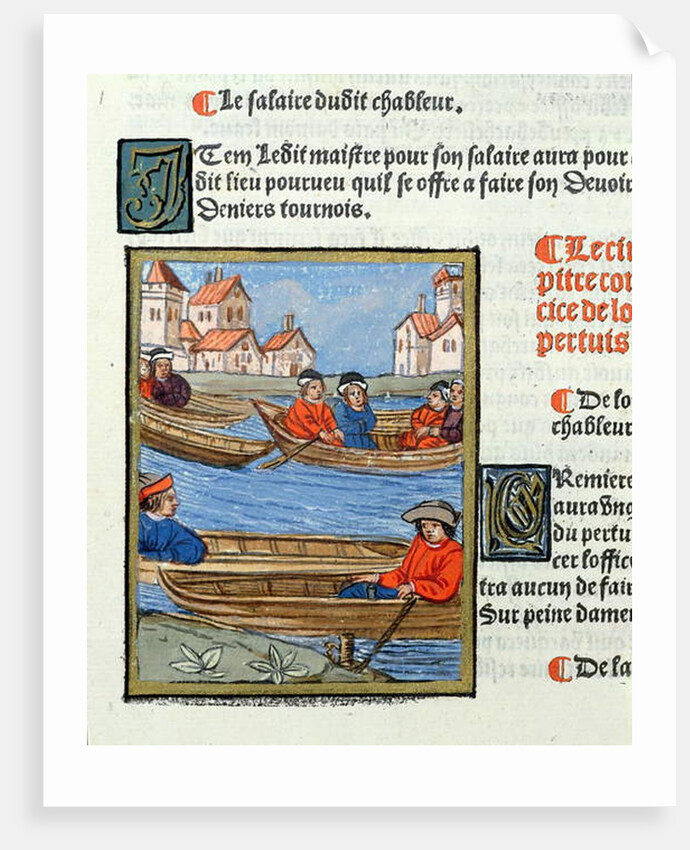 Le salaire dudit chableur.
ITem Ledit maistre pour son salaire aura pour
dit lieu pourueu quil se offre a faire son Deuoir
Deniers tournois.
Le cin
pitre con
cice de lo
pertuis
De lo
chableur
PRemiere
aura vng
du pertu
cer loffice
tra aucun de fair
Sur peine damen
De la